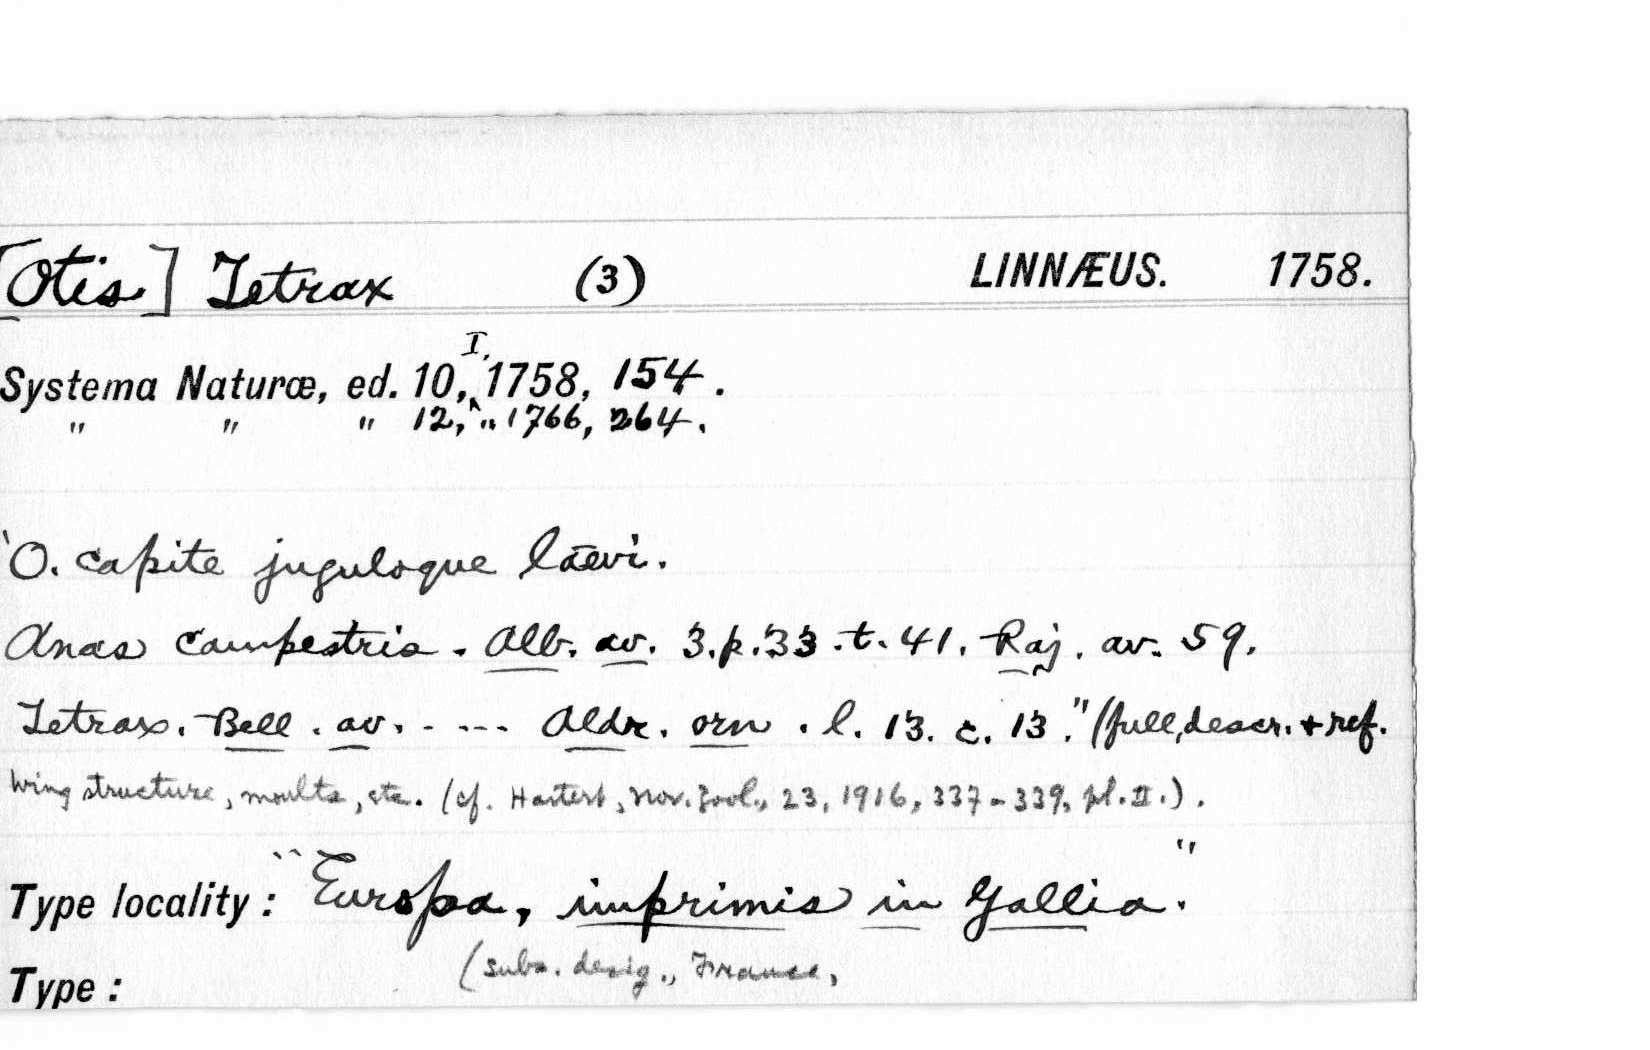 [Otis] Tetrax (3) LINNÆUS. 1758.
I,
Systema Naturæ, ed. 10,, 1758, 154.
" " " 12, ,, 1766, 264.
"O. capite juguloque laevi.
Anas campestris. Alb. av. 3. p. 33. t. 41. Raj. av. 59.
Tetrax. Bell. av. - --- Aldr. orn. l. 13. c. 13." (full descr. + ref.
Wing structure, moults, etc. (cf. Hartert, Nov. Zool., 23, 1916, 337-339, pl. II.).
Type locality: "Europa, imprimis in Gallia."
(subs. desig., France,
Type: